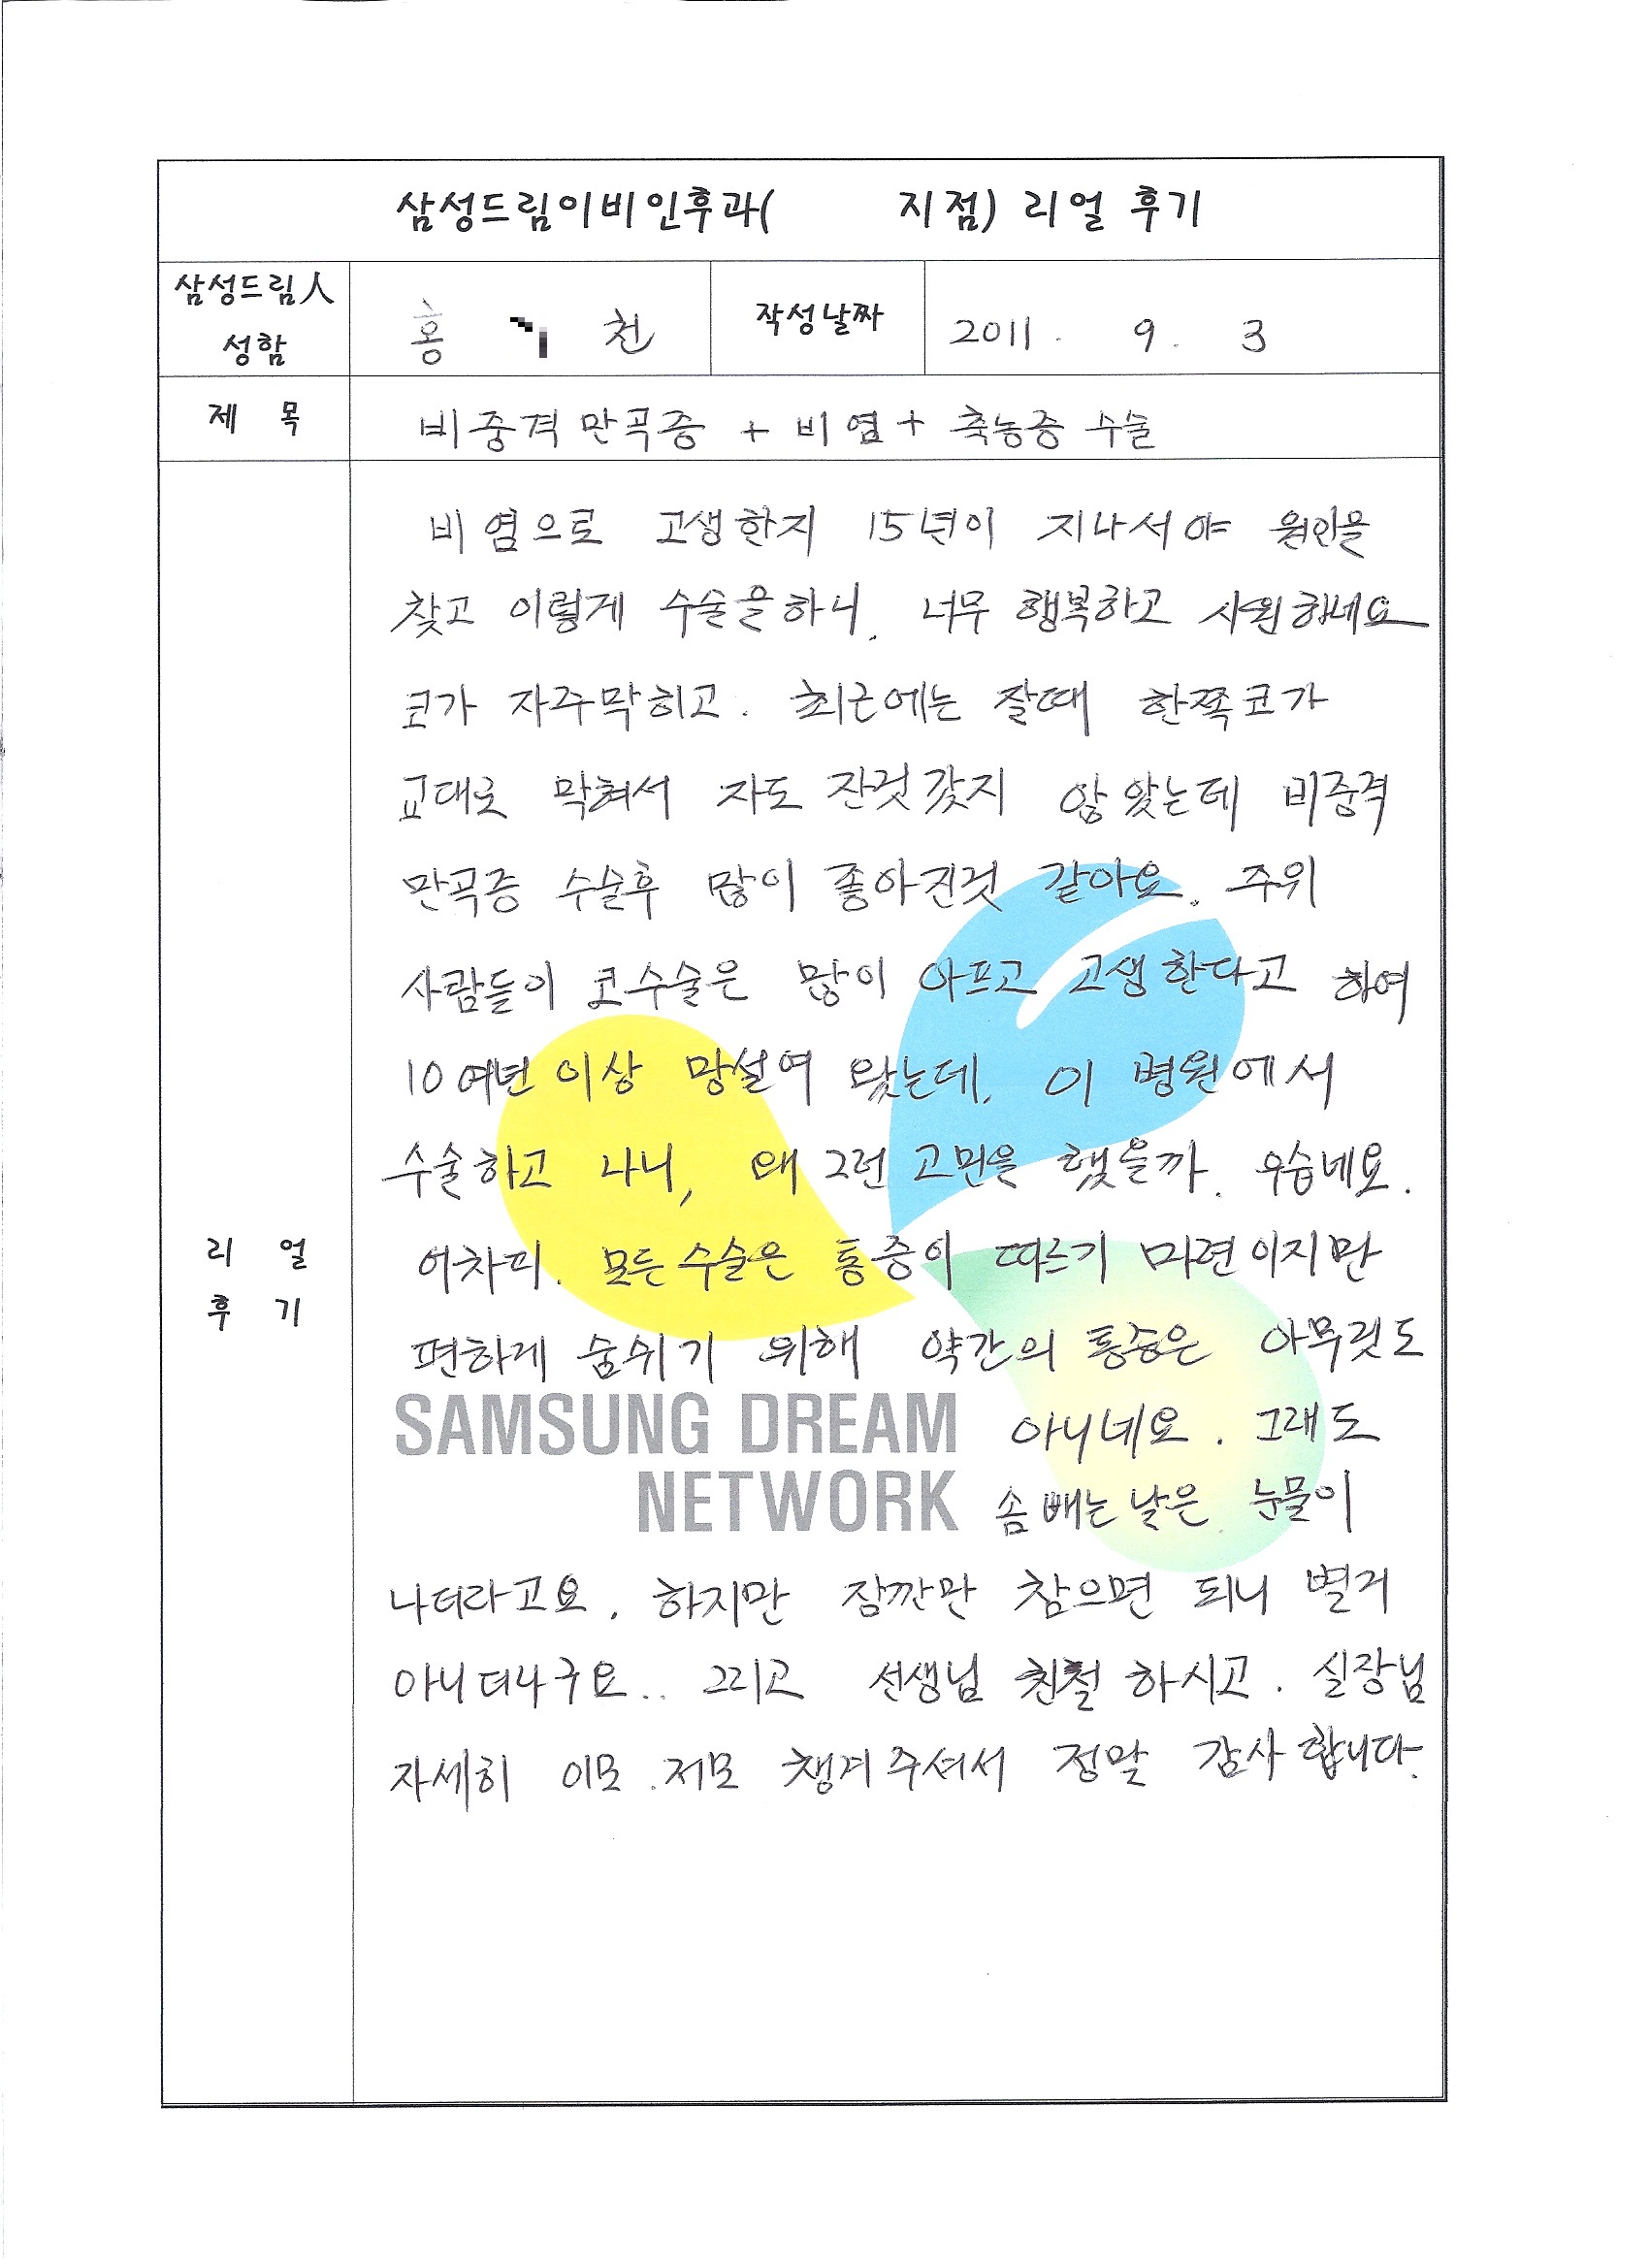 삼성드림이비인후과( 지점) 리얼 후기
삼성드림人
성함
홍 천
작성날짜
2011. 9. 3
제 목
비중격만곡증 + 비염 + 축농증 수술
비염으로 고생한지 15년이 지나서야 원인을
찾고 이렇게 수술을하니. 너무 행복하고 시원하네요
코가 자주막히고. 최근에는 잘때 한쪽코가
교대로 막혀서 자도 잔것 갖지 않았는데 비중격
만곡증 수술후 많이 좋아진것 같아요. 주위
사람들이 코수술은 많이 아프고 고생한다고 하여
10여년 이상 망설여 왔는데. 이 병원에서
수술하고 나니, 왜 그런 고민을 했을까. 우습네요.
어차피. 모든수술은 통증이 따르기 마련이지만
편하게 숨쉬기 위해 약간의 통증은 아무것도
아니네요. 그래도
솜빼는날은 눈물이
나더라고요. 하지만 잠깐만 참으면 되니 별거
아니더라구요.. 그리고 선생님 친절하시고. 실장님
자세히 이모.저모 챙겨주셔서 정말 감사합니다.
리 얼
후 기
SAMSUNG DREAM
NETWORK